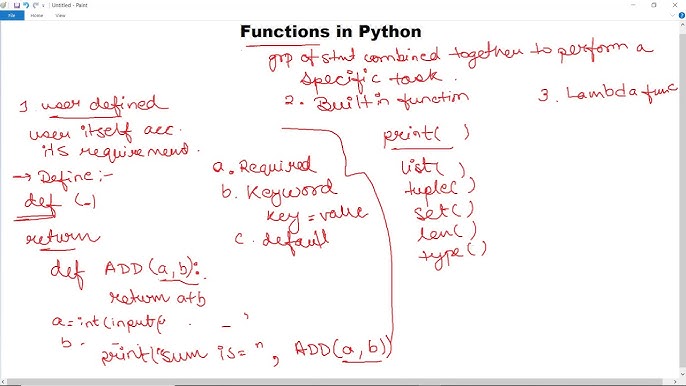 Untitled - Paint
File Home View
Functions in Python
grp of stmt combined together to perform a
specific task.
1 user defined
2. Built in function
3. Lambda func
user itself acc.
its requirement.
→ Define :-
def (-)
return
def ADD(a,b):
return a+b
a=int(input("
b -
print("sum is= ", ADD(a,b))
a. Required
b. Keyword
key = value
c. default
print( )
list( )
tuple( )
set( )
len( )
type( )